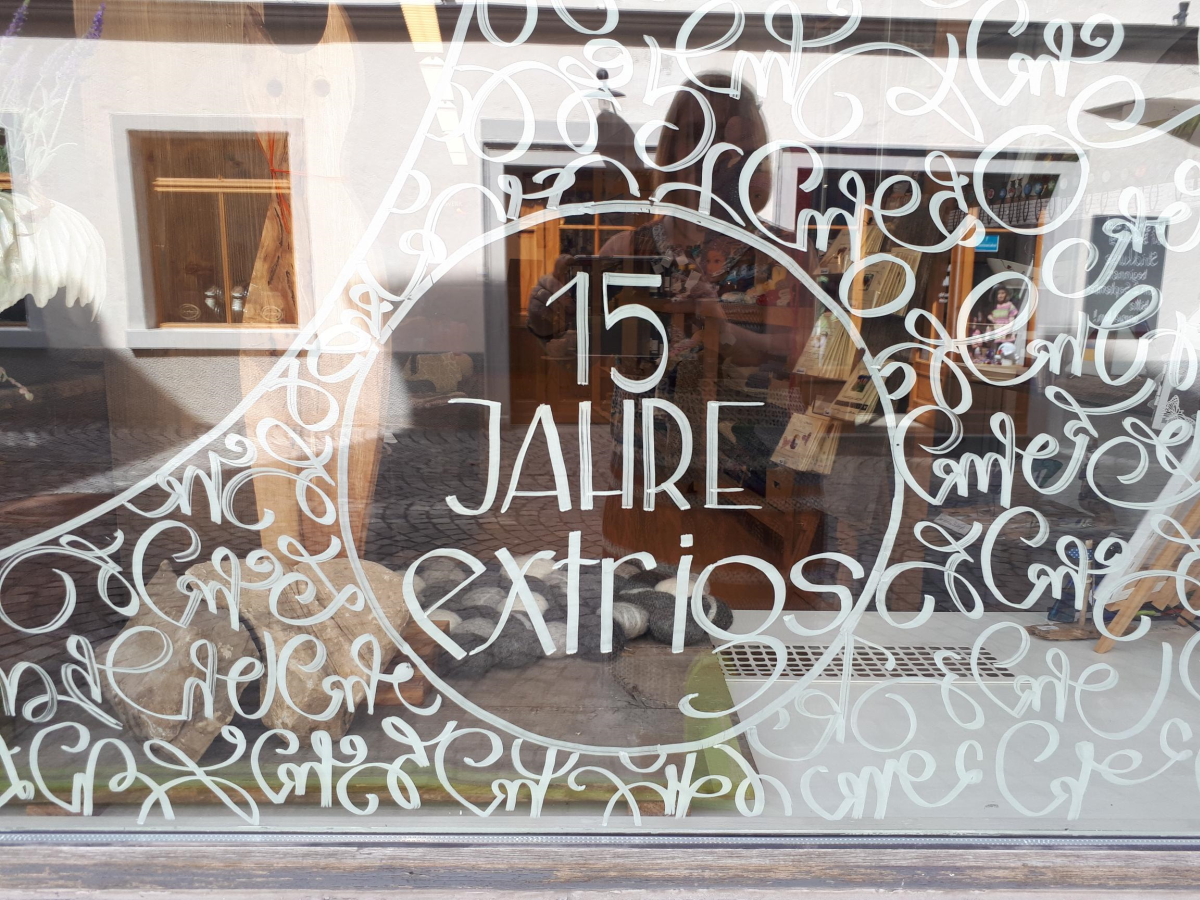 15
JAHRE
extrios